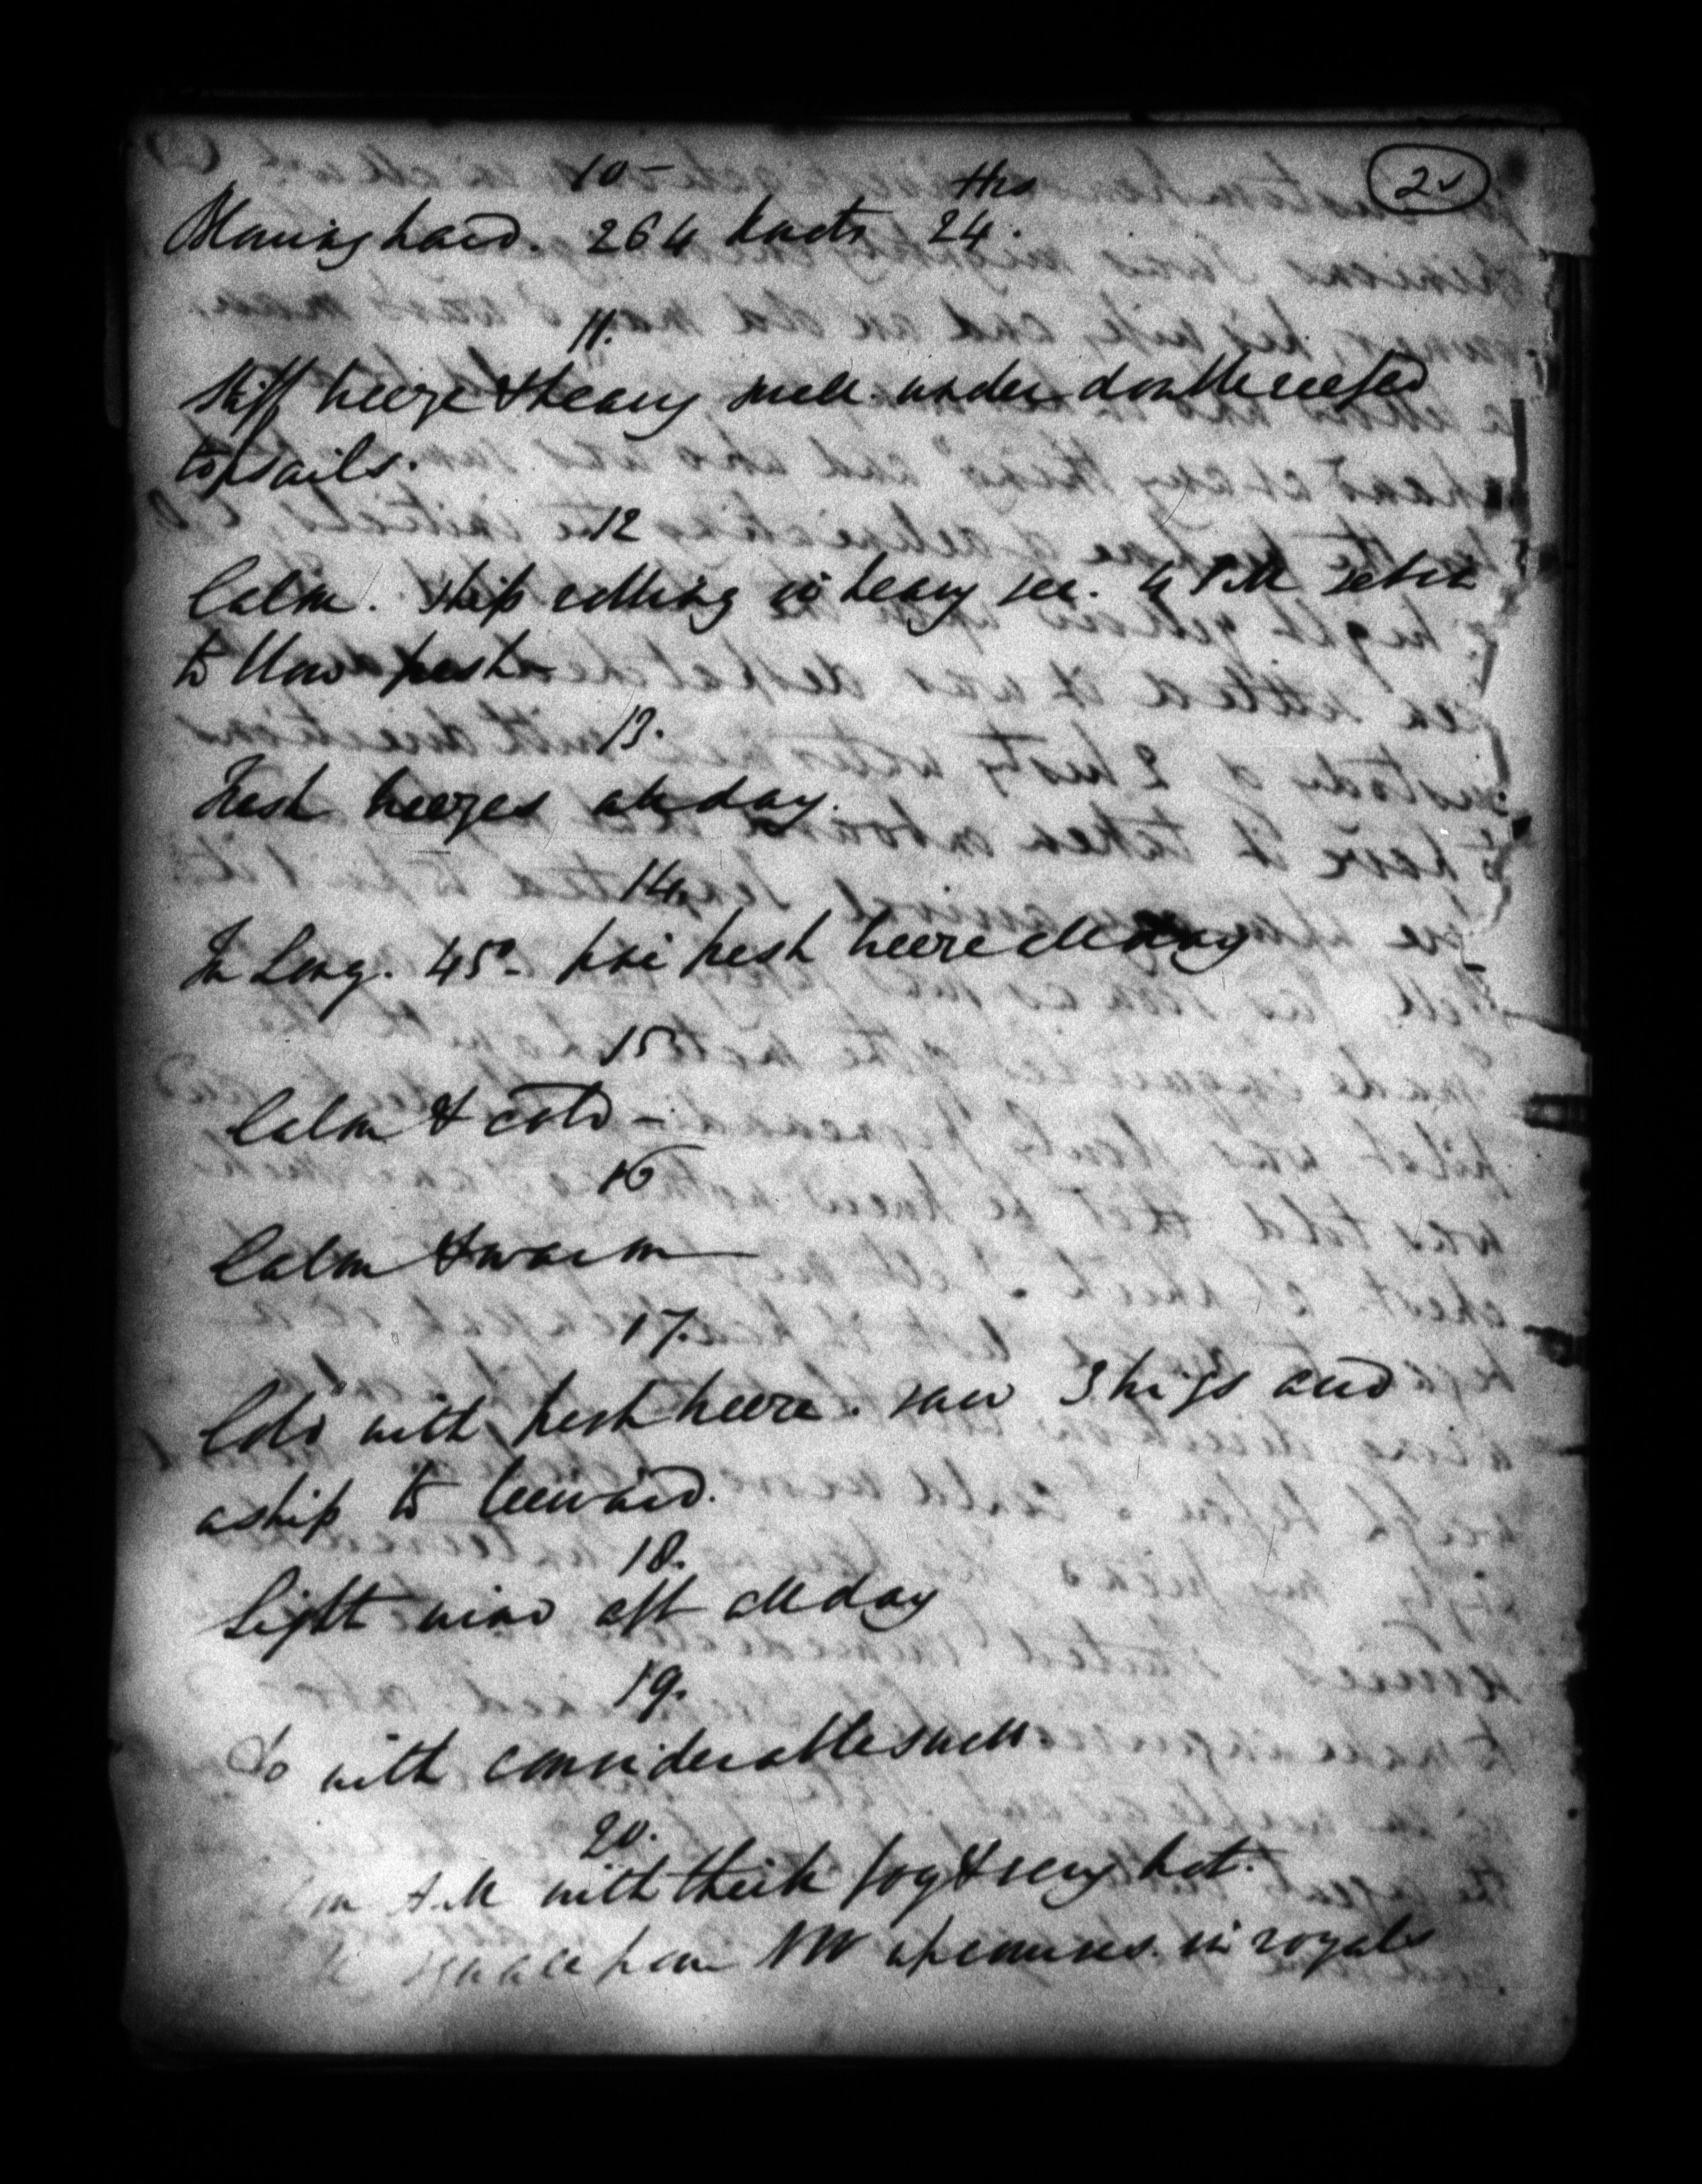 2v
10 -
Blowing hard. 264 knots 24 Hrs.
11.
Stiff breeze & heavy swell under double reefed
topsails.
12
Calm. Ship rolling in heavy sea. 4 P.M set in
to blow fresh -
13.
Fresh breezes all day.
14.
In Long. 45°- fair fresh breeze all day
15
Calm & cold -
16
Calm & warm
17.
Cold with fresh breeze. saw 3 brigs and
a ship to leeward.
18.
Light wind aft all day
19.
Do with considerable swell
20.
A.M with thick fog & very hot.
squall from NW in royals